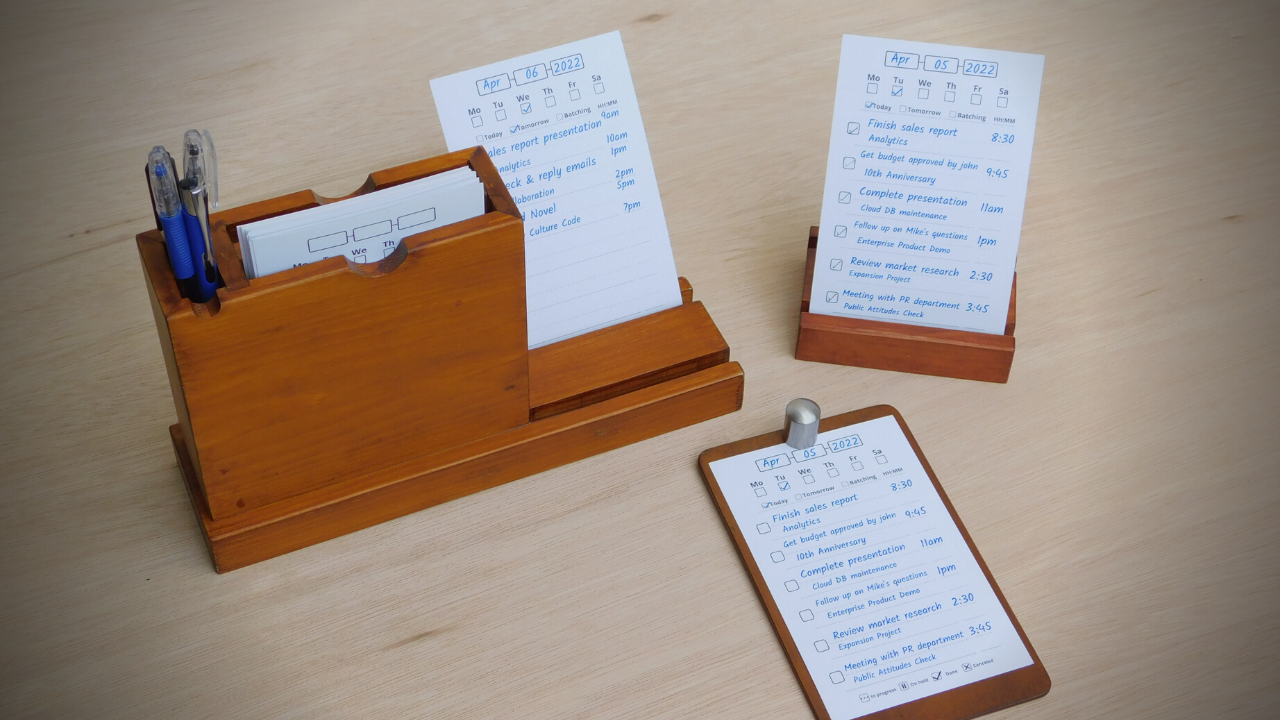 Apr 06 2022
Mo Tu We Th Fr Sa
Today Tomorrow Batching HH:MM
ales report presentation 9am
nalytics 10am
eck & reply emails 1pm
laboration 2pm
d Novel 5pm
Culture Code 7pm
We Th
Apr 05 2022
Mo Tu We Th Fr Sa
Today Tomorrow Batching HH:MM
Finish sales report 8:30
Analytics
Get budget approved by john 9:45
10th Anniversary
Complete presentation 11am
Cloud DB maintenance
Follow up on Mike's questions 1pm
Enterprise Product Demo
Review market research 2:30
Expansion Project
Meeting with PR department 3:45
Public Attitudes Check
Apr 05 2022
Mo Tu We Th Fr Sa
Today Tomorrow Batching HH:MM
Finish sales report 8:30
Analytics
Get budget approved by john 9:45
10th Anniversary
Complete presentation 11am
Cloud DB maintenance
Follow up on Mike's questions 1pm
Enterprise Product Demo
Review market research 2:30
Expansion Project
Meeting with PR department 3:45
Public Attitudes Check
In progress On hold Done Canceled